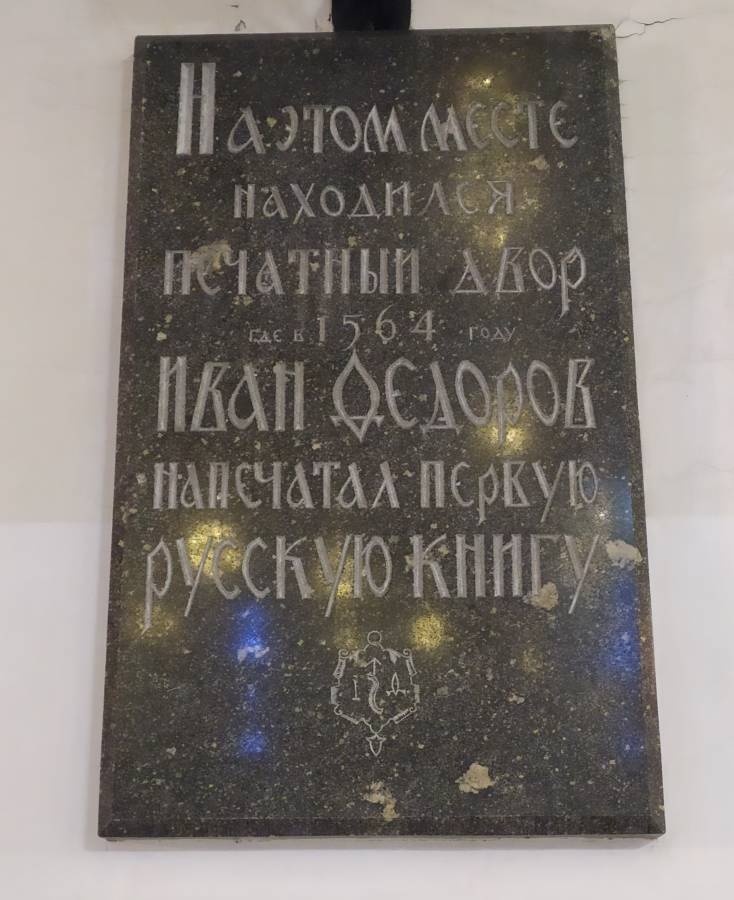 На этом месте
находился
печатный двор
где в 1564 году
Иван Федоров
напечатал первую
русскую книгу